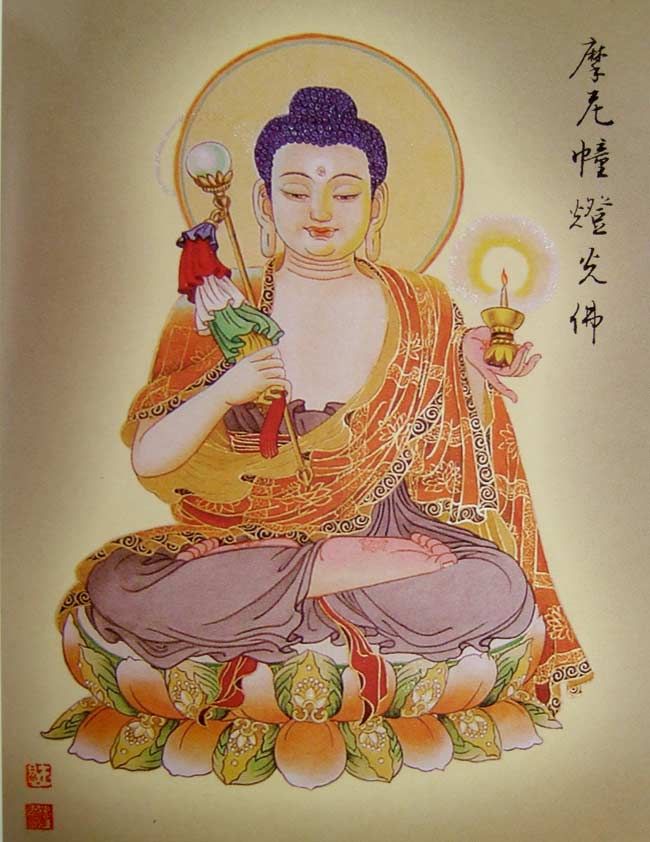 摩尼幢燈光佛